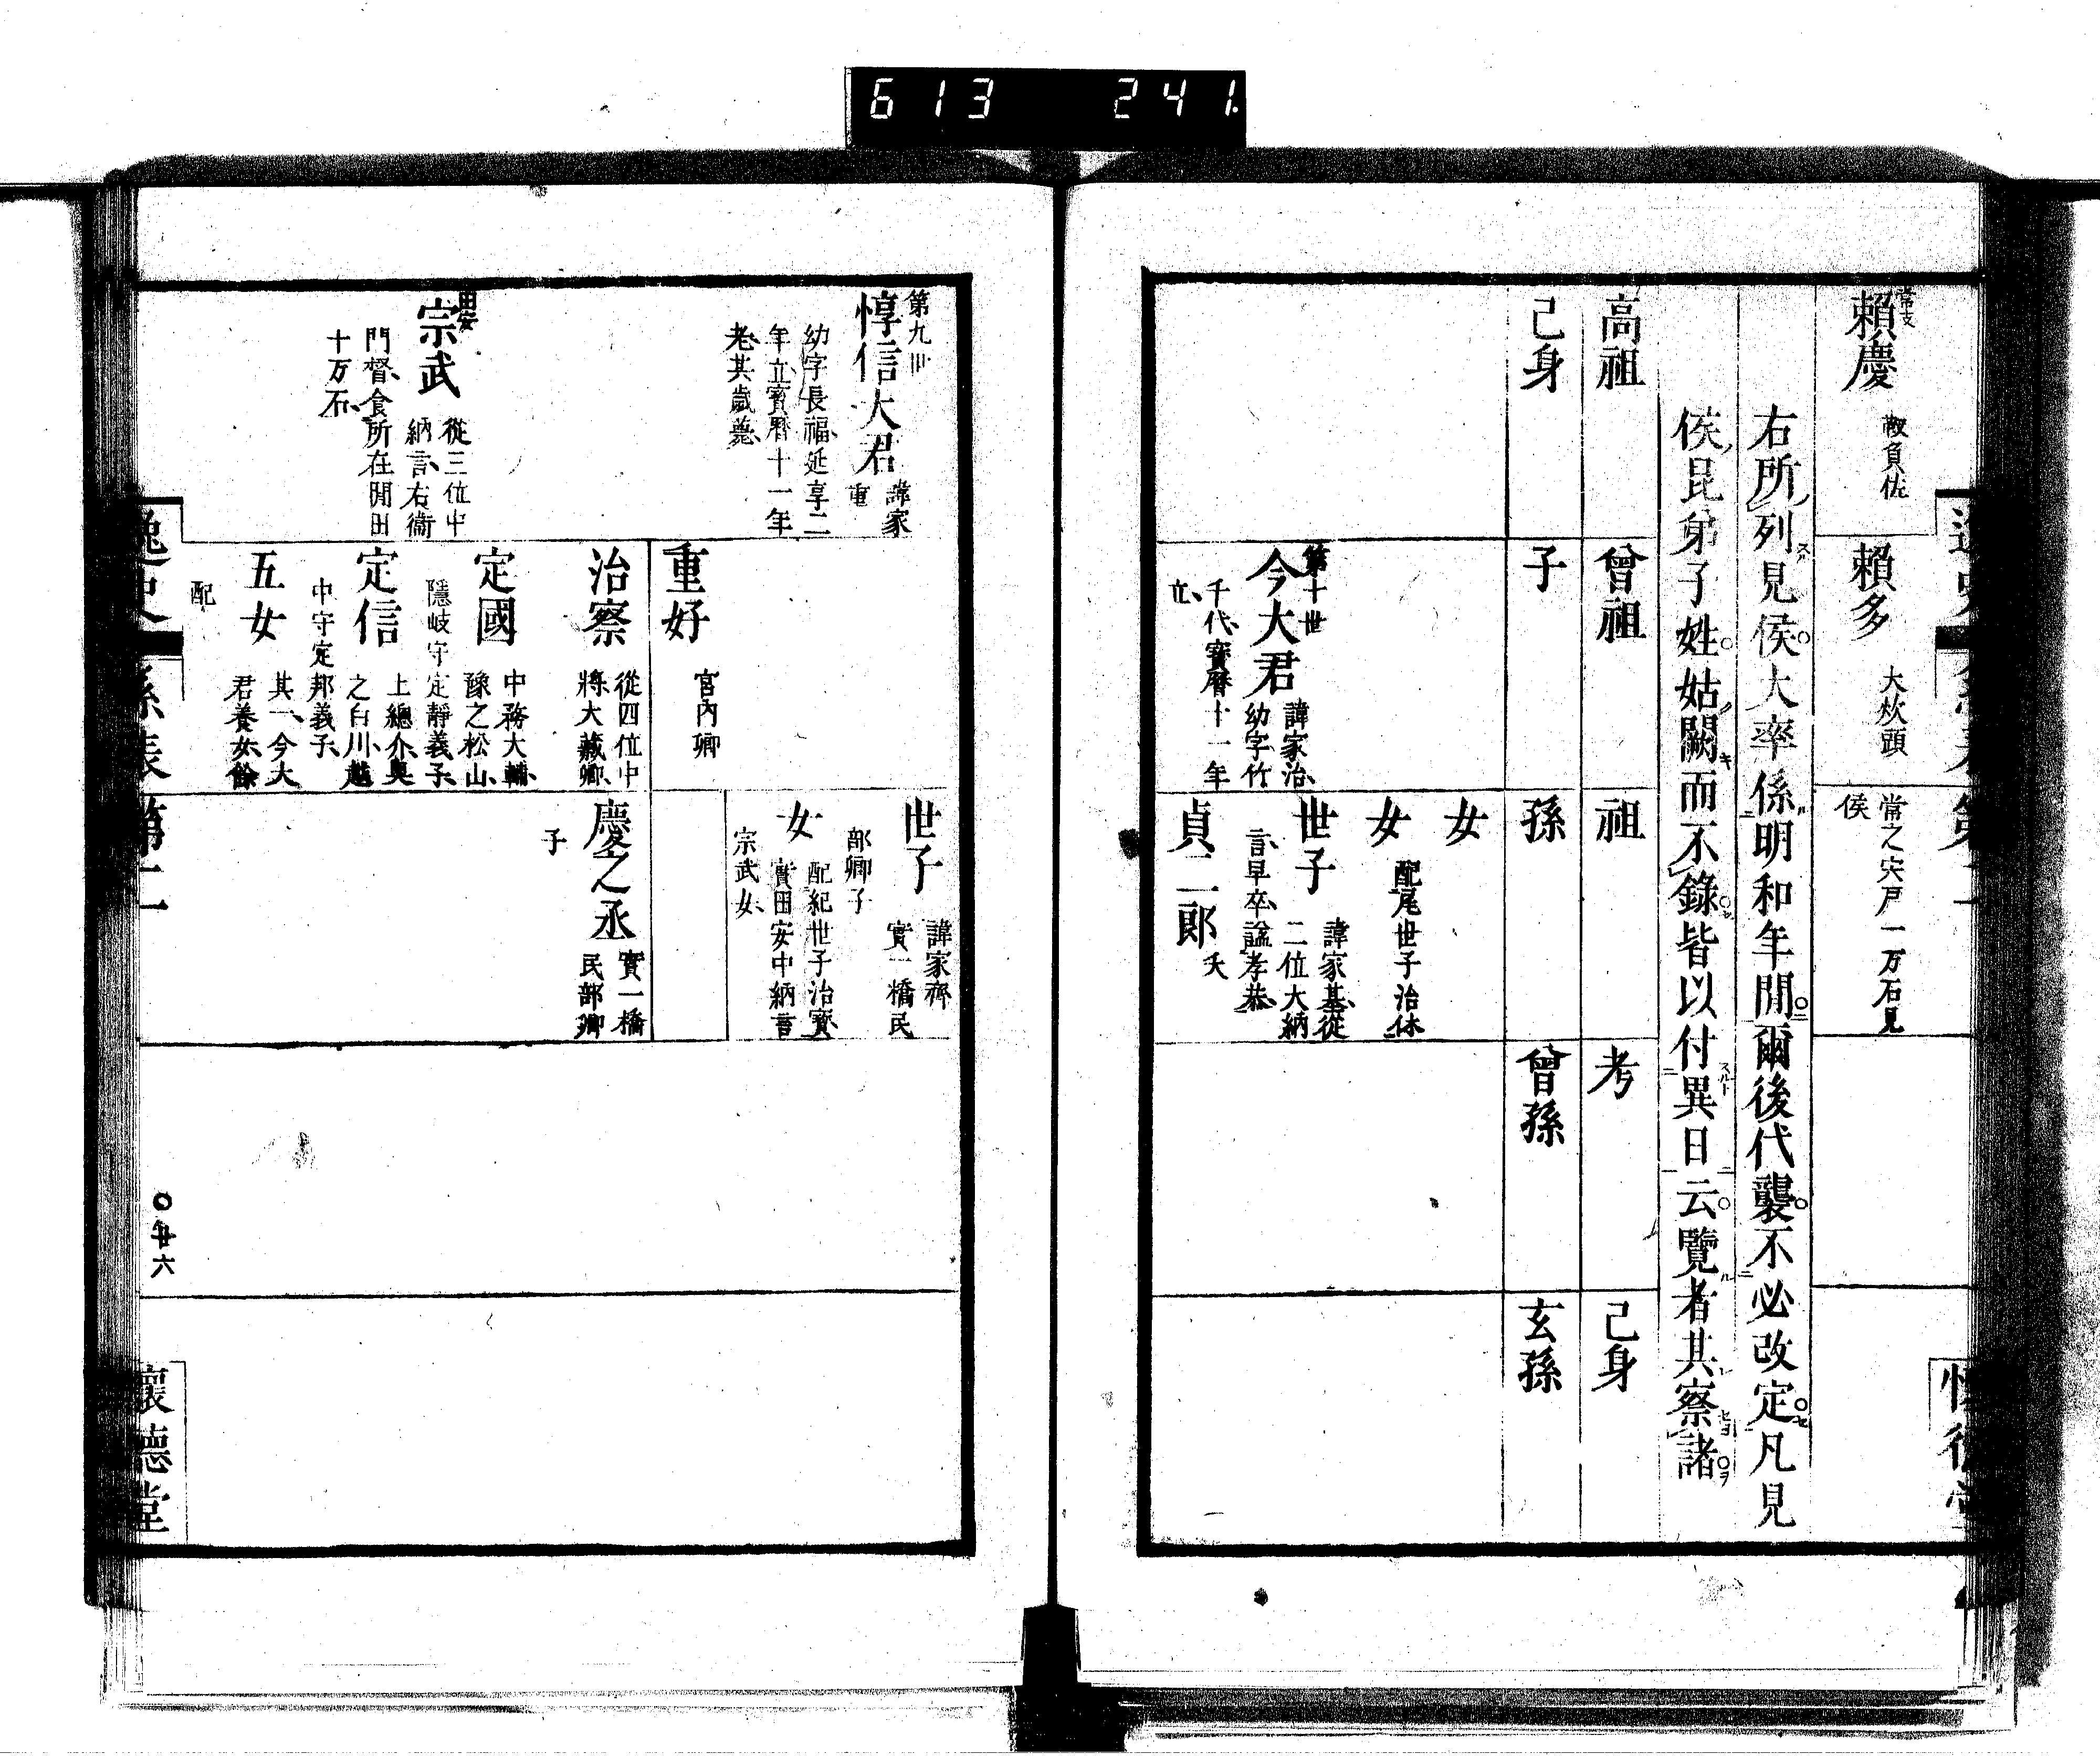 613 241
常支
賴慶
敵負佐
賴多
大炊頭
常之宍戸一万石見
侯
右所列見侯大率係明和年間爾後代襲不必改定凡見
侯昆弟子姓姑闕而不錄皆以付異日云覽者其察諸
高祖
曾祖
祖
考
己身
己身
子
孫
曾孫
玄孫
女
女
配尾世子治休
第十世
今大君
諱家治
幼字竹
千代寶曆十一年
立
世子
諱家基從
二位大納
言早卒諡孝恭
貞二郎
夭
第九世
惇信大君
諱家
重
幼字長福延享二
年立寶曆十一年
老其歲薨
世子
諱家齊
實一橋民
部卿子
女
配紀世子治寶
實田安中納言
宗武女
重好
宮內卿
田安
宗武
從三位中
納言右衞
門督食所在閒田
十万石
治察
從四位中
將大藏卿
慶之丞
實一橋
民部卿
子
定國
中務大輔
豫之松山
隱岐守定靜義子
定信
上總介奧
之白川越
中守定邦義子
五女
其一今大
君養女餘
配
逸史
系表
第二
〇卅六
懷德堂